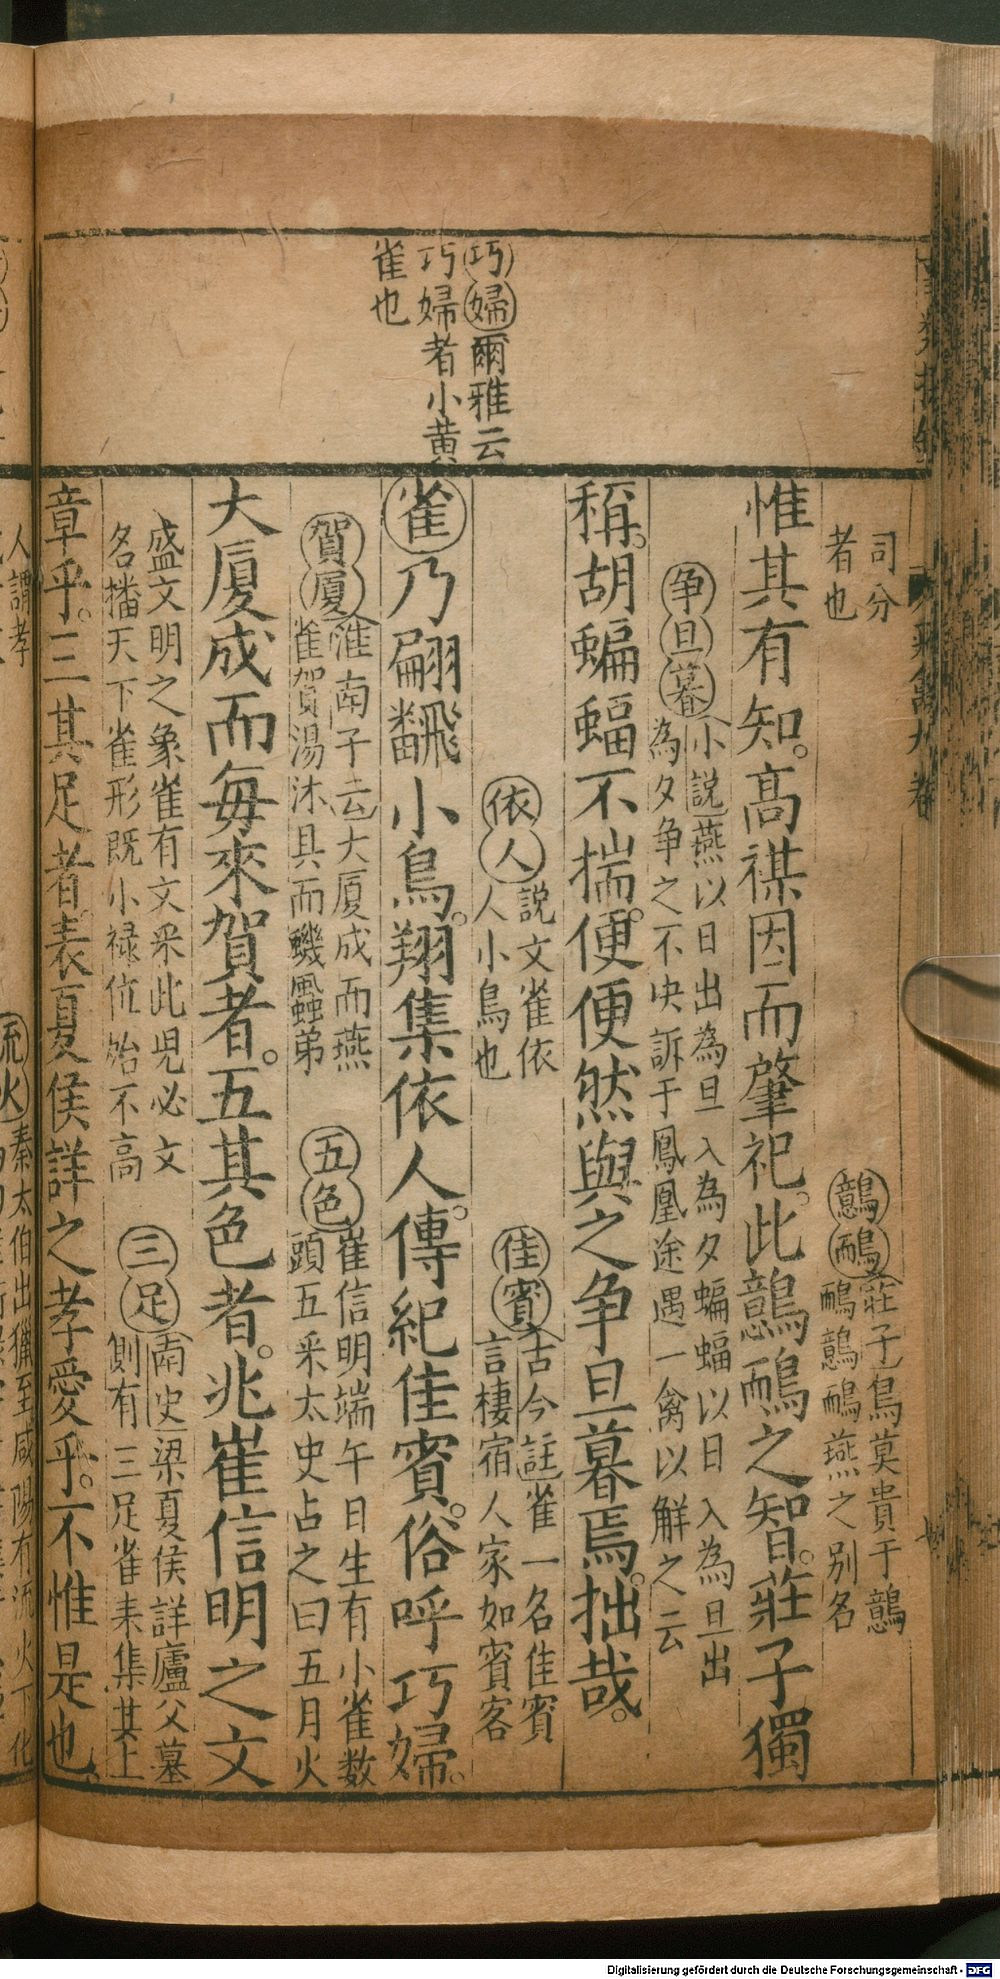 巧婦爾雅云
巧婦者小黄
雀也
司分
者也
鷾鴯莊子鳥莫貴于鷾
鴯鷾鴯燕之别名
惟其有知。高禖因而肇祀。此鷾鴯之智。莊子獨
争旦暮小說燕以日出為旦入為夕蝙蝠以日入為旦出
為夕争之不决訴于鳳凰途遇一禽以解之云
稱。胡蝙蝠不揣。便便然與之争旦暮焉。拙哉。
依人説文雀依
人小鳥也
佳賓古今註雀一名佳賓
言棲宿人家如賓客
雀乃翩飜小鳥。翔集依人。傳紀佳賓。俗呼巧婦。
賀厦淮南子云大厦成而燕
雀賀湯沐具而蟣蝨弟
五色崔信明端午日生有小雀数
頭五采太史占之曰五月火
大厦成而每來賀者。五其色者。兆崔信明之文
盛文明之象雀有文采此児必文
名播天下雀形既小禄位始不高
三足南史梁夏侯詳廬父墓
側有三足雀来集其上
章乎。三其足者。表夏侯詳之孝愛乎。不惟是也。
人謂孝
流火秦太伯出獵至咸陽有流火下化
Digitalisierung gefördert durch die Deutsche Forschungsgemeinschaft - DFG